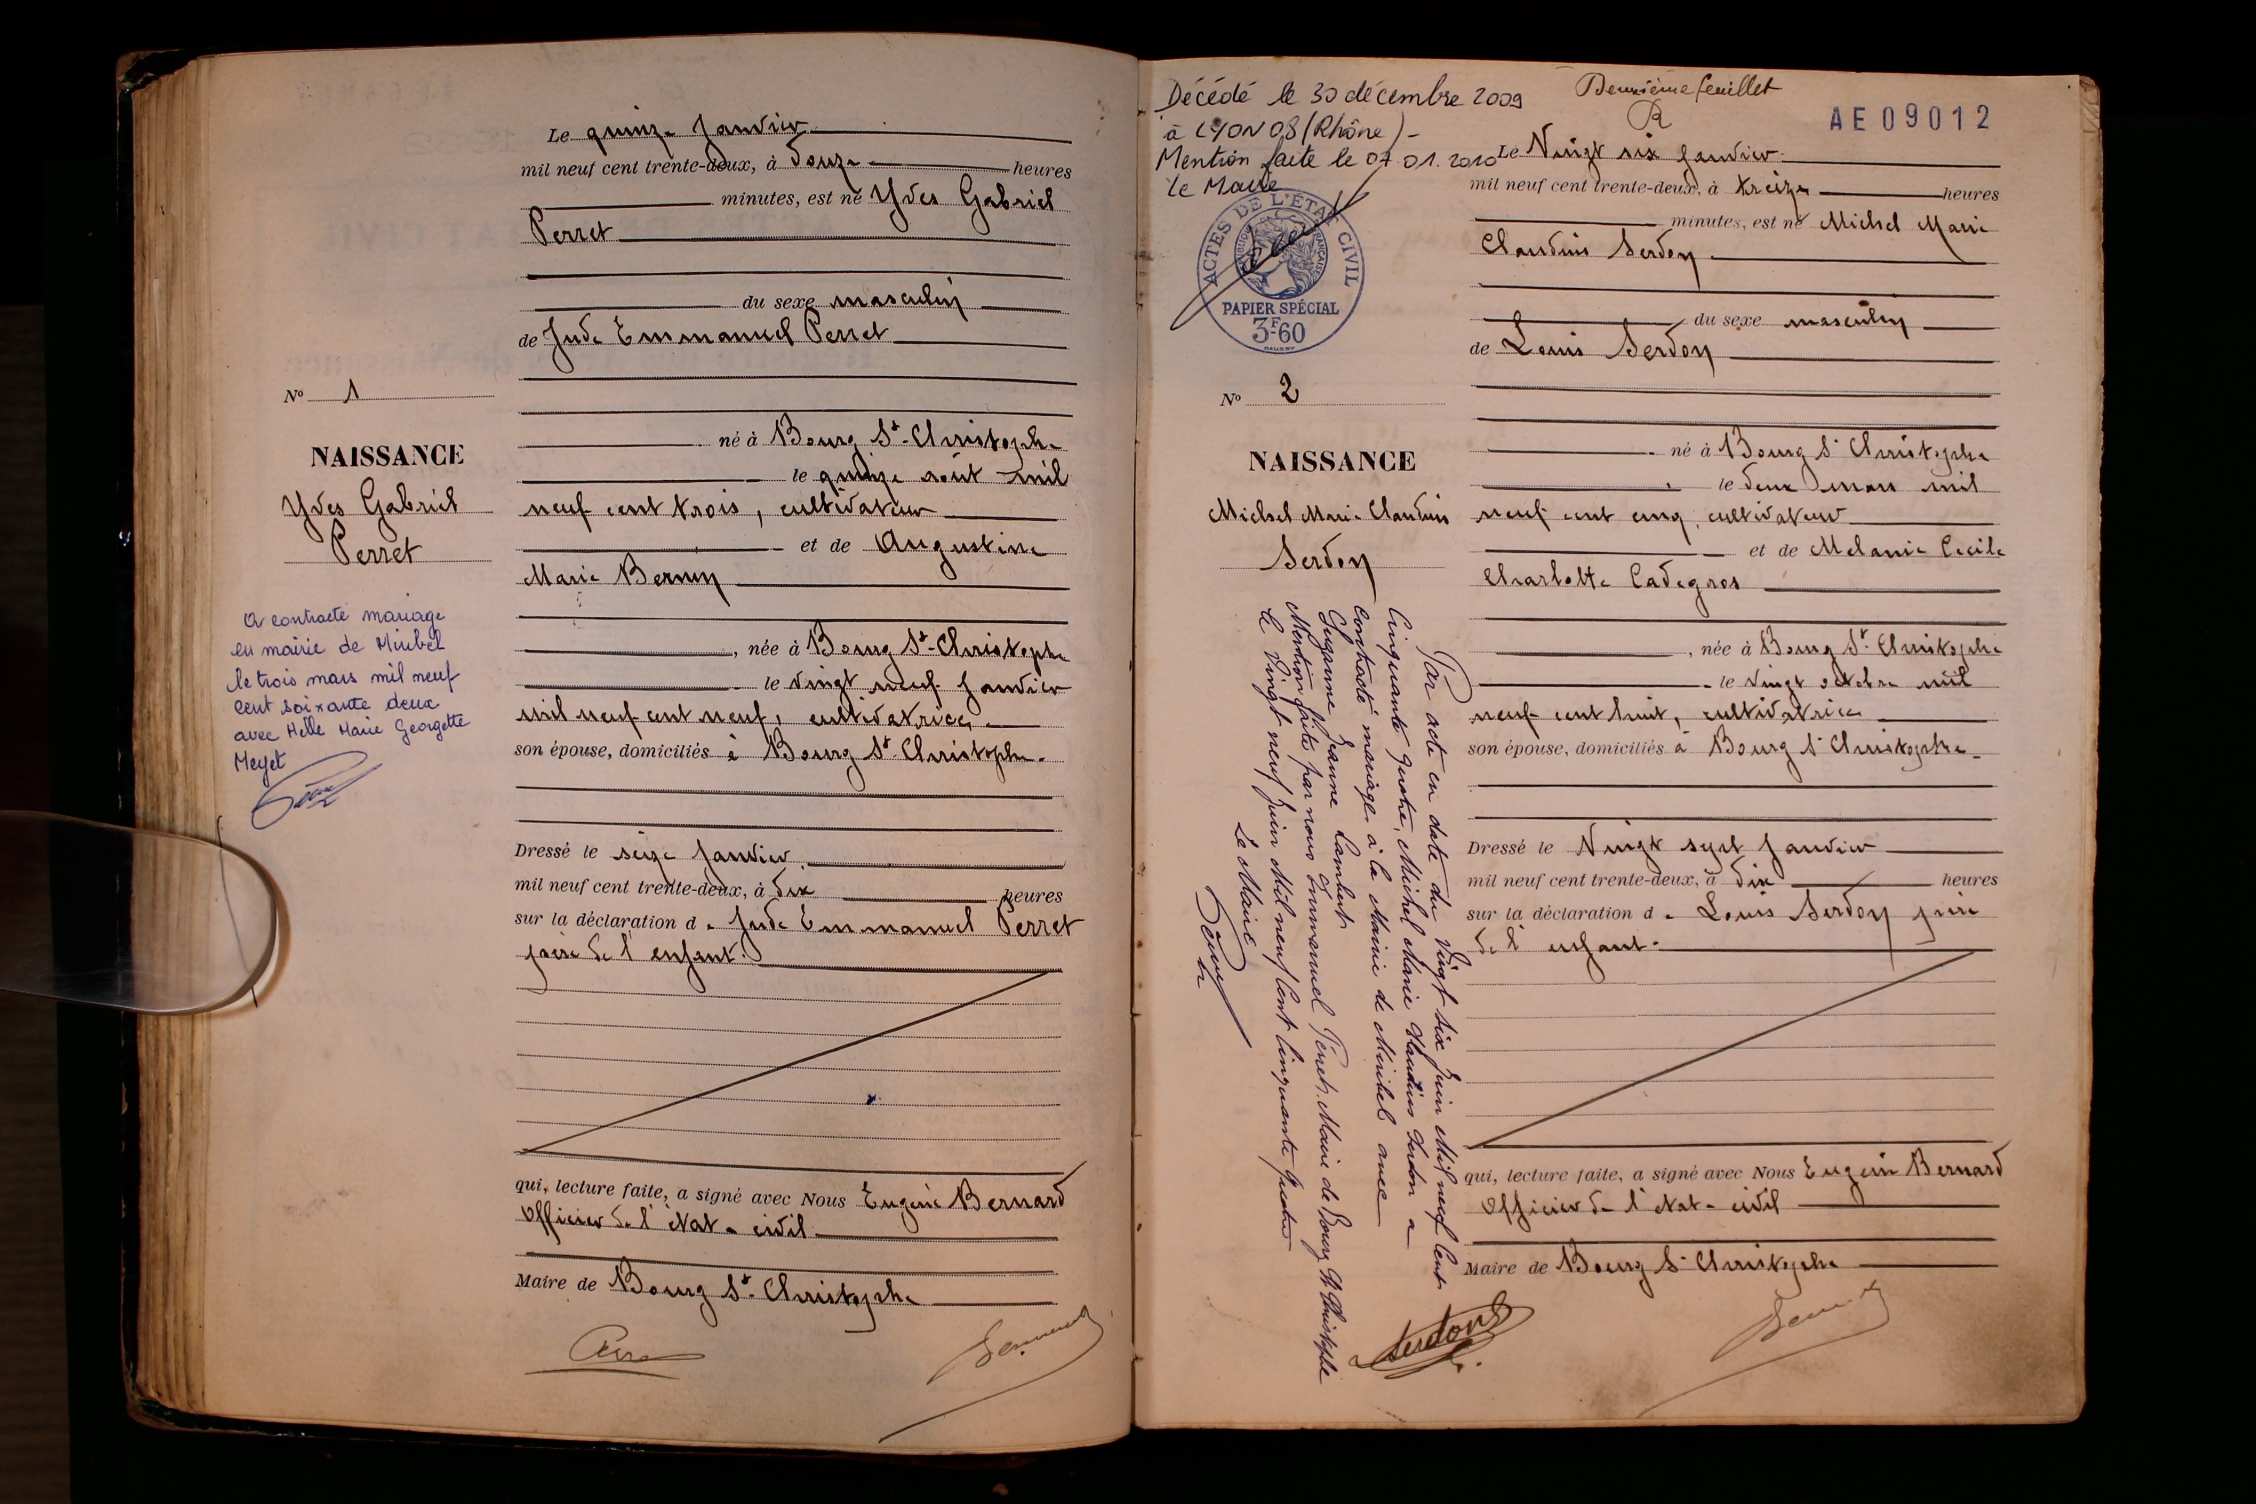 Le quinze Janvier
mil neuf cent trente-deux, à douze heures
minutes, est né Yves Gabriel
Perret
du sexe masculin
de Jude Emmanuel Perret
né à Bourg St-Christophe
le quinze août mil
neuf cent trois, cultivateur
et de Augustine
Marie Bernin
, née à Bourg St-Christophe
le vingt neuf Janvier
mil neuf cent neuf, cultivatrice,
son épouse, domiciliés à Bourg St-Christophe.
Dressé le seize Janvier
mil neuf cent trente-deux, à dix heures
sur la déclaration de Jude Emmanuel Perret
père de l'enfant.
qui, lecture faite, a signé avec Nous Eugène Bernard
Officier de l'état-civil
Maire de Bourg St-Christophe
No 1
NAISSANCE
Yves Gabriel
Perret
a contracté mariage
en mairie de Miribel
le trois mars mil neuf
cent soixante deux
avec Melle Marie Georgette
Meyet
Décédé le 30 décembre 2009
à LYON 08 (Rhône) -
Mention faite le 07.01.2010
Le Maire
ACTES DE L'ETAT CIVIL
RÉPUBLIQUE FRANÇAISE
PAPIER SPÉCIAL
3F60
Deuxième feuillet
AE09012
No 2
NAISSANCE
Michel Marie Claudius
Serdon
Par acte en date du Vingt six Juin Mil neuf Cent
Cinquante quatre, Michel Marie Claudius Serdon a
contracté mariage à la Mairie de Miribel avec
Suzanne Jeanne Lambert
Mention faite par nous Emmanuel Perret, Maire de Bourg St Christophe
le Vingt neuf Juin Mil neuf Cent Cinquante quatre
Le Maire
Le Vingt six Janvier
mil neuf cent trente-deux, à treize heures
minutes, est né Michel Marie
Claudius Serdon
du sexe masculin
de Louis Serdon
né à Bourg St Christophe
le deux mars mil
neuf cent cinq, cultivateur
et de Melanie Cecile
Charlotte Cadegros
, née à Bourg St-Christophe
le vingt octobre mil
neuf cent huit, cultivatrice
son épouse, domiciliés à Bourg St Christophe
Dressé le Vingt sept Janvier
mil neuf cent trente-deux, à dix heures
sur la déclaration de Louis Serdon père
de l'enfant.
qui, lecture faite, a signé avec Nous Eugène Bernard
Officier de l'état-civil
Maire de Bourg St Christophe
Serdon